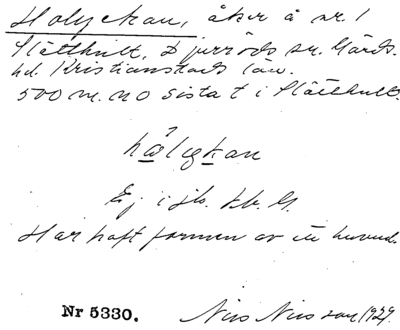 Holyckan, åker å nr. 1
Slätthult, Djurröds sn. Gärds
hd. Kristianstads län.
500 m. no sista t i Slätthult.
hålykan
Ej i jb. kb. G.
Har haft formen av ett huvud.
Nr 5330. Nils Nilsson 1929.